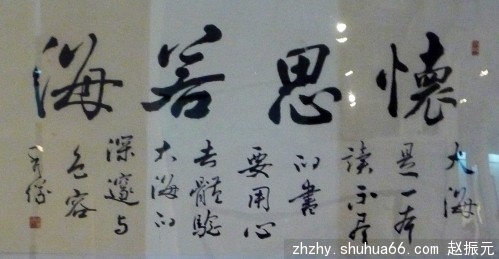 懷思若海
大海
是一本
讀不尽
的書
要用心
去體驗
大海的
深邃与
包容
zhzhy.shuhua66.com 赵振元